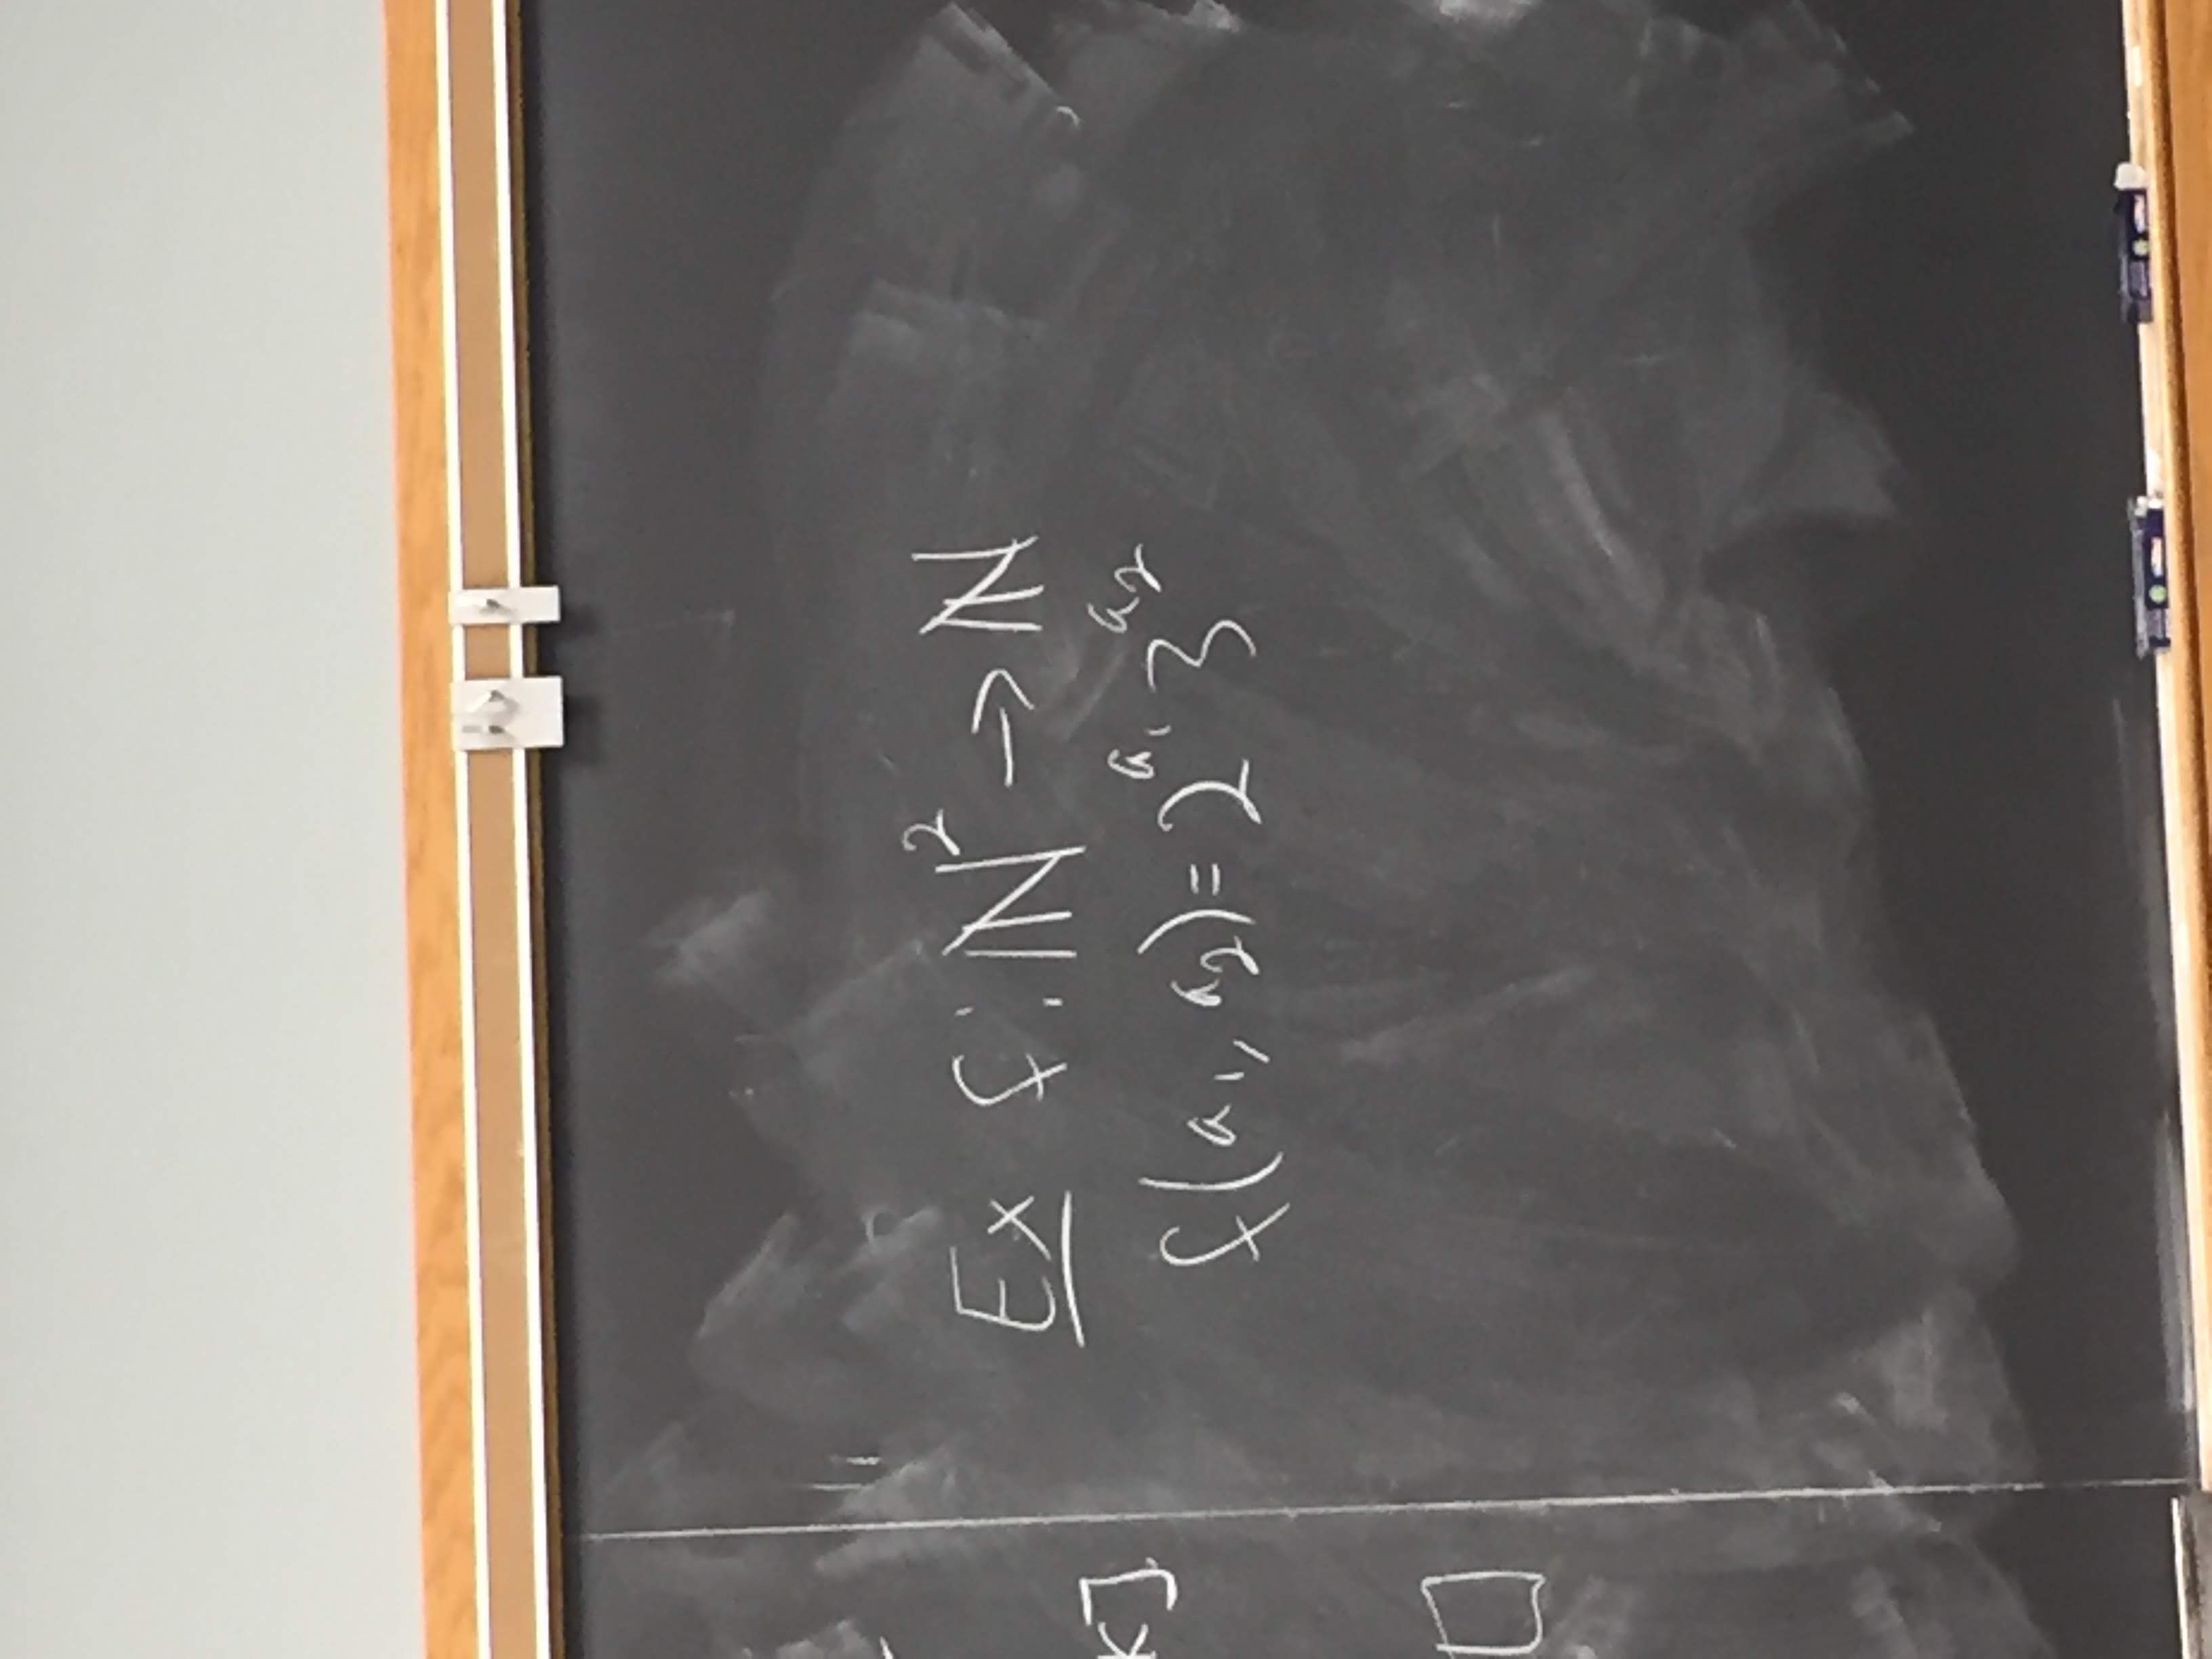 Ex f: ℕ² → ℕ
f(a₁, a₂) = 2^{a₁} 3^{a₂}
K]